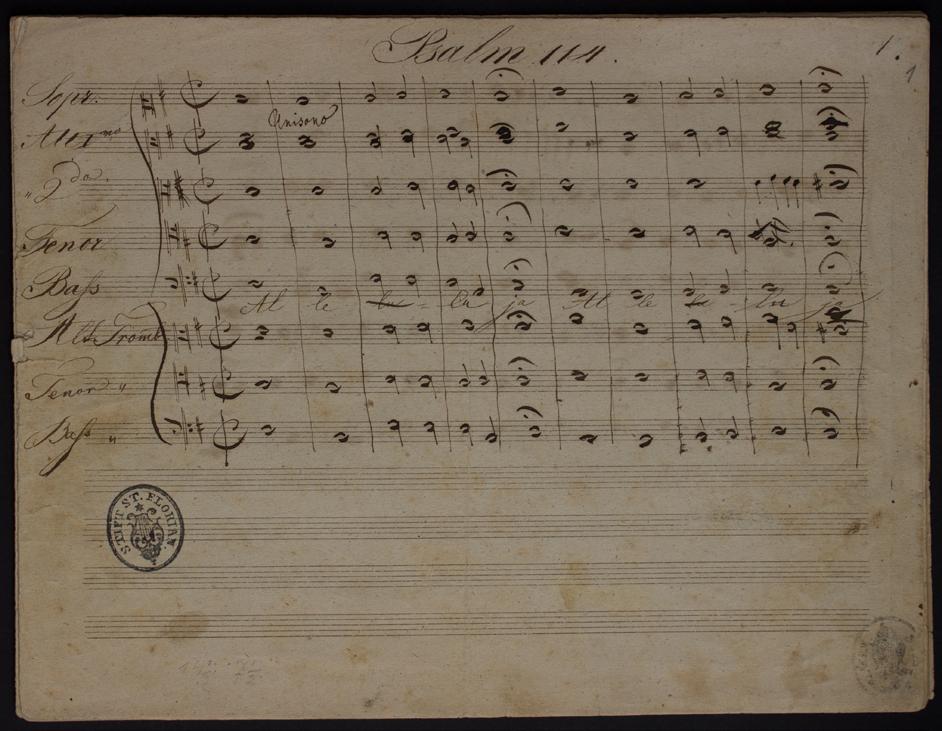 Psalm 114. 1.
1
Sopr.
Unisono
Alt 1mo
" 2do.
Tenor
Baß
Al le lu - lu ja Al le lu - lu ja
Alt Tromb
Tenor "
Baß "
STIFT ST. FLORIAN